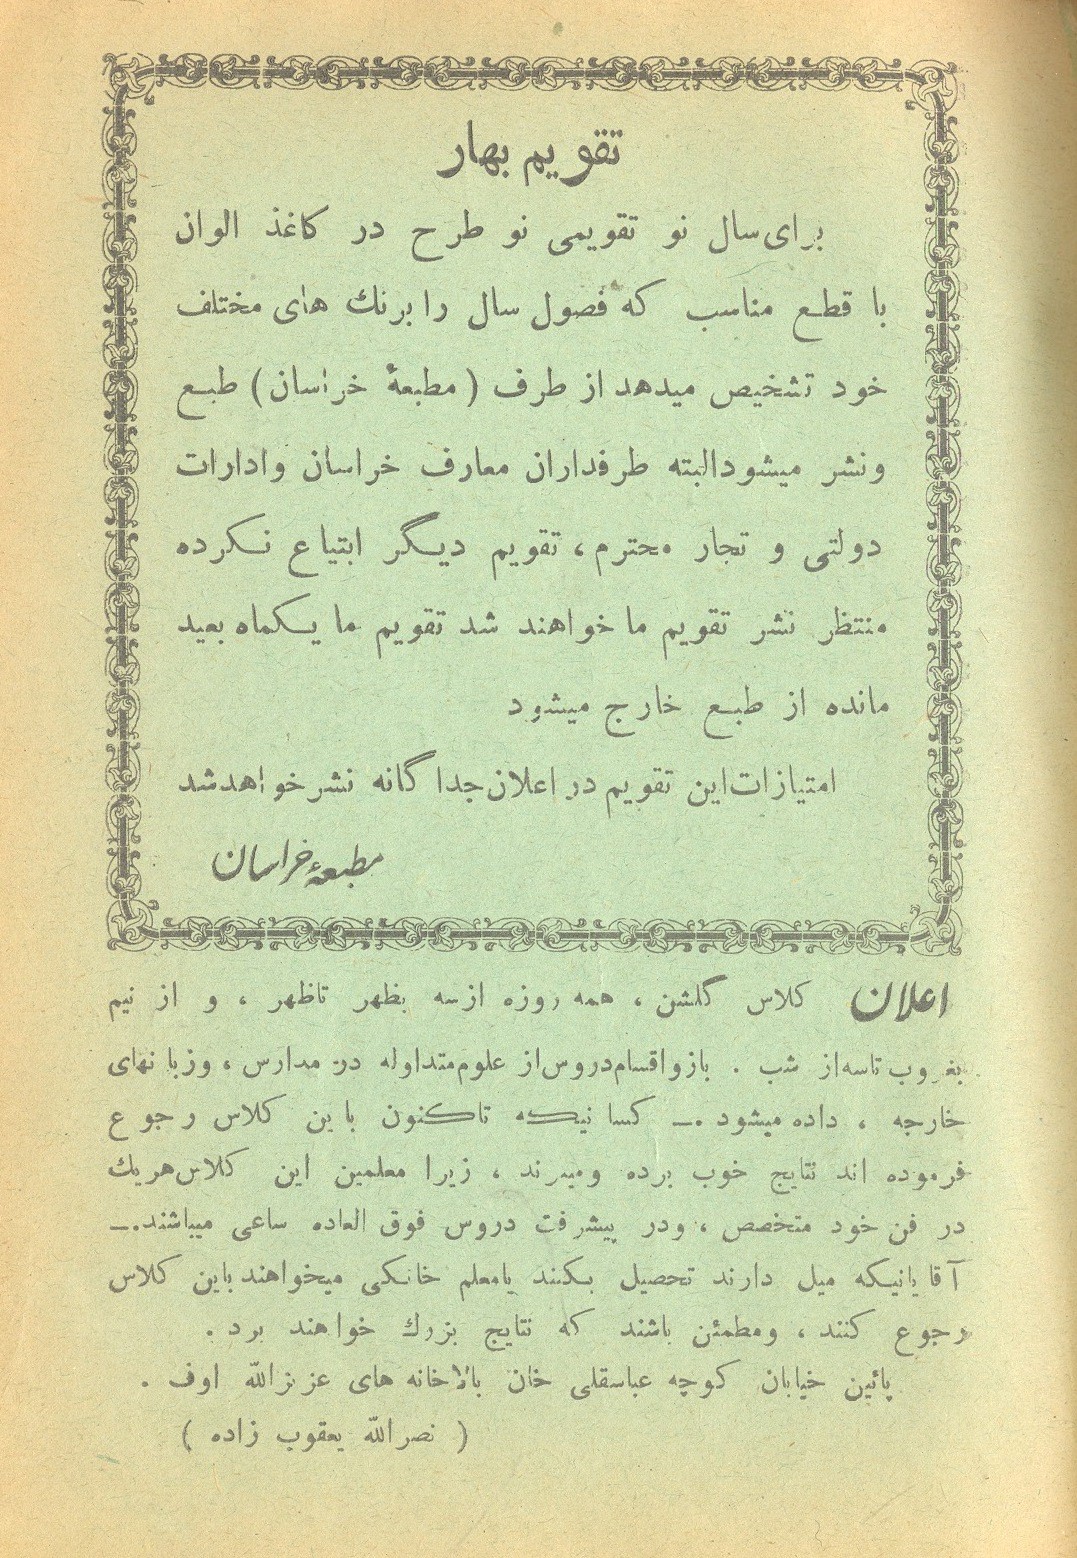 تقویم بهار
برای سال نو تقویمی نو طرح در كاغذ الوان
با قطع مناسب كه فصول سال را برنك های مختلف
خود تشخیص میدهد از طرف ( مطبعهٔ خراسان ) طبع
ونشر میشود البته طرفداران معارف خراسان وادارات
دولتی و تجار محترم ، تقویم دیگر ابتیاع نكرده
منتظر نشر تقویم ما خواهند شد تقویم ما یكماه بعید
مانده از طبع خارج میشود
امتیازات این تقویم در اعلان جدا گانه نشر خواهد شد
مطبعهٔ خراسان
اعلان كلاس گلشن ، همه روزه از سه بظهر تاظهر ، و از نیم
بغروب تاسه از شب . باز واقسام دروس از علوم متداوله در مدارس ، وزبا نهای
خارجه ، داده میشود .— كسا نیكه تاكنون باین كلاس رجوع
فرموده اند نتایج خوب برده ومیبرند ، زیرا معلمین این كلاس هریك
در فن خود متخصص ، ودر پیشرفت دروس فوق العاده ساعی میباشند.—
آقا یانیكه میل دارند تحصیل بكنند یامعلم خانكی میخواهند باین كلاس
رجوع كنند ، ومطمئن باشند كه نتایج بزرك خواهند برد .
پائین خیابان كوچه عباسقلی خان بالاخانه های عزیزالله اوف .
( نصرالله یعقوب زاده )